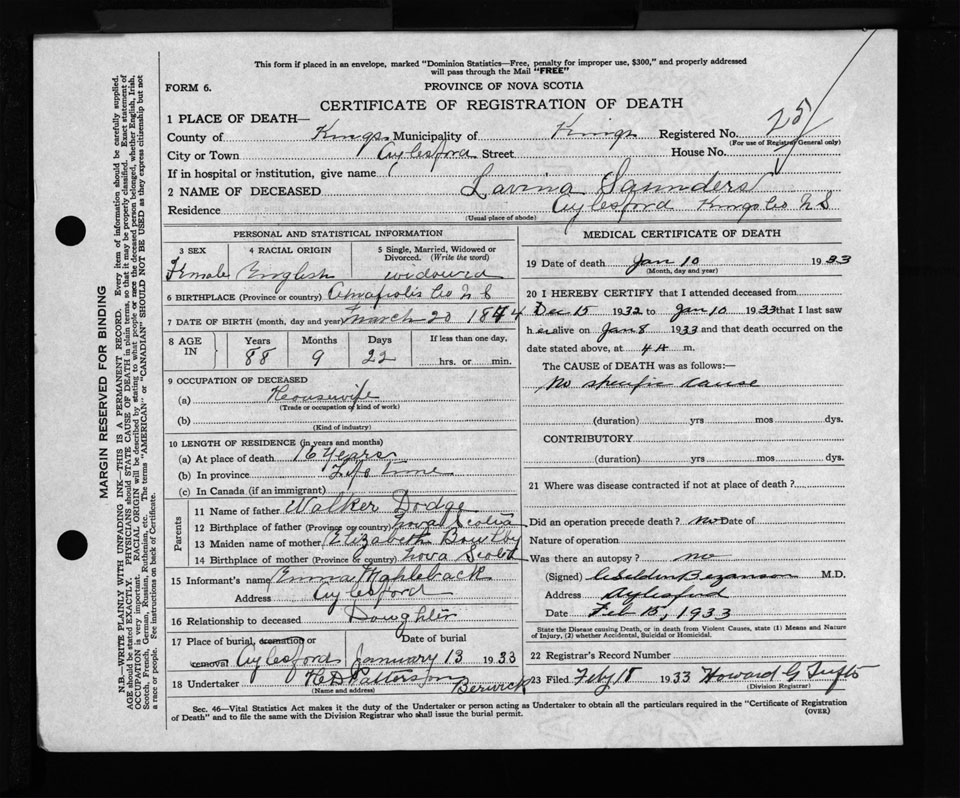 This form if placed in an envelope, marked "Dominion Statistics—Free, penalty for improper use, $300," and properly addressed
will pass through the Mail "FREE"
FORM 6.
PROVINCE OF NOVA SCOTIA
CERTIFICATE OF REGISTRATION OF DEATH
1 PLACE OF DEATH—
County of Kings Municipality of Kings Registered No. 25
(For use of Registrar General only)
City or Town Aylesford Street House No.
If in hospital or institution, give name
2 NAME OF DECEASED Lavina Saunders
Residence Aylesford Kings Co N S
(Usual place of abode)
PERSONAL AND STATISTICAL INFORMATION
3 SEX 4 RACIAL ORIGIN 5 Single, Married, Widowed or
Divorced. (Write the word)
Female English widowed
6 BIRTHPLACE (Province or country) Annapolis Co N S
7 DATE OF BIRTH (month, day and year) March 20 1844
8 AGE IN Years Months Days If less than one day,
88 9 22 hrs. or min.
9 OCCUPATION OF DECEASED
(a) Housewife
(Trade or occupation of kind of work)
(b)
(Kind of industry)
10 LENGTH OF RESIDENCE (in years and months)
(a) At place of death 16 years
(b) In province Life time
(c) In Canada (if an immigrant)
Parents
11 Name of father Walker Dodge
12 Birthplace of father (Province or country) Nova Scotia
13 Maiden name of mother Elizabeth Bowlby
14 Birthplace of mother (Province or country) Nova Scotia
15 Informant's name Emma
Address Aylesford
16 Relationship to deceased Doughter
17 Place of burial, cremation or Date of burial
removal Aylesford January 13 1933
18 Undertaker Patterson Berwick
(Name and address)
MEDICAL CERTIFICATE OF DEATH
19 Date of death Jan 10 1933
(Month, day and year)
20 I HEREBY CERTIFY that I attended deceased from
Dec 15 1932 to Jan 10 1933 that I last saw
her alive on Jan 8 1933 and that death occurred on the
date stated above, at 4 A m.
The CAUSE of DEATH was as follows:—
No specific cause
(duration) yrs mos dys.
CONTRIBUTORY
(duration) yrs mos dys.
21 Where was disease contracted if not at place of death?
Did an operation precede death? no Date of
Nature of operation
Was there an autopsy? no
(Signed) Bezanson M.D.
Address Aylesford
Date Feb 15, 1933
State the Disease causing Death, or in death from Violent Causes, state (1) Means and Nature
of Injury, (2) whether Accidental, Suicidal or Homicidal.
22 Registrar's Record Number
23 Filed Feby 18 1933 Howard G Tufts
(Division Registrar)
Sec. 46—Vital Statistics Act makes it the duty of the Undertaker or person acting as Undertaker to obtain all the particulars required in the "Certificate of Registration
of Death" and to file the same with the Division Registrar who shall issue the burial permit.
(OVER)
MARGIN RESERVED FOR BINDING
N.B.—WRITE PLAINLY WITH UNFADING INK—THIS IS A PERMANENT RECORD. Every item of information should be carefully supplied.
AGE should be stated EXACTLY. PHYSICIANS should STATE CAUSE OF DEATH in plain terms, so that it may be properly classified. Exact statement of
OCCUPATION is very important. RACIAL ORIGIN will be described by stating to what people or race the deceased person belonged, whether English, Irish,
Scotch, French, German, Russian, Ruthenian, etc. The terms "AMERICAN" or "CANADIAN" SHOULD NOT BE USED as they express citizenship but not
a race or people. See instructions on back of Certificate.